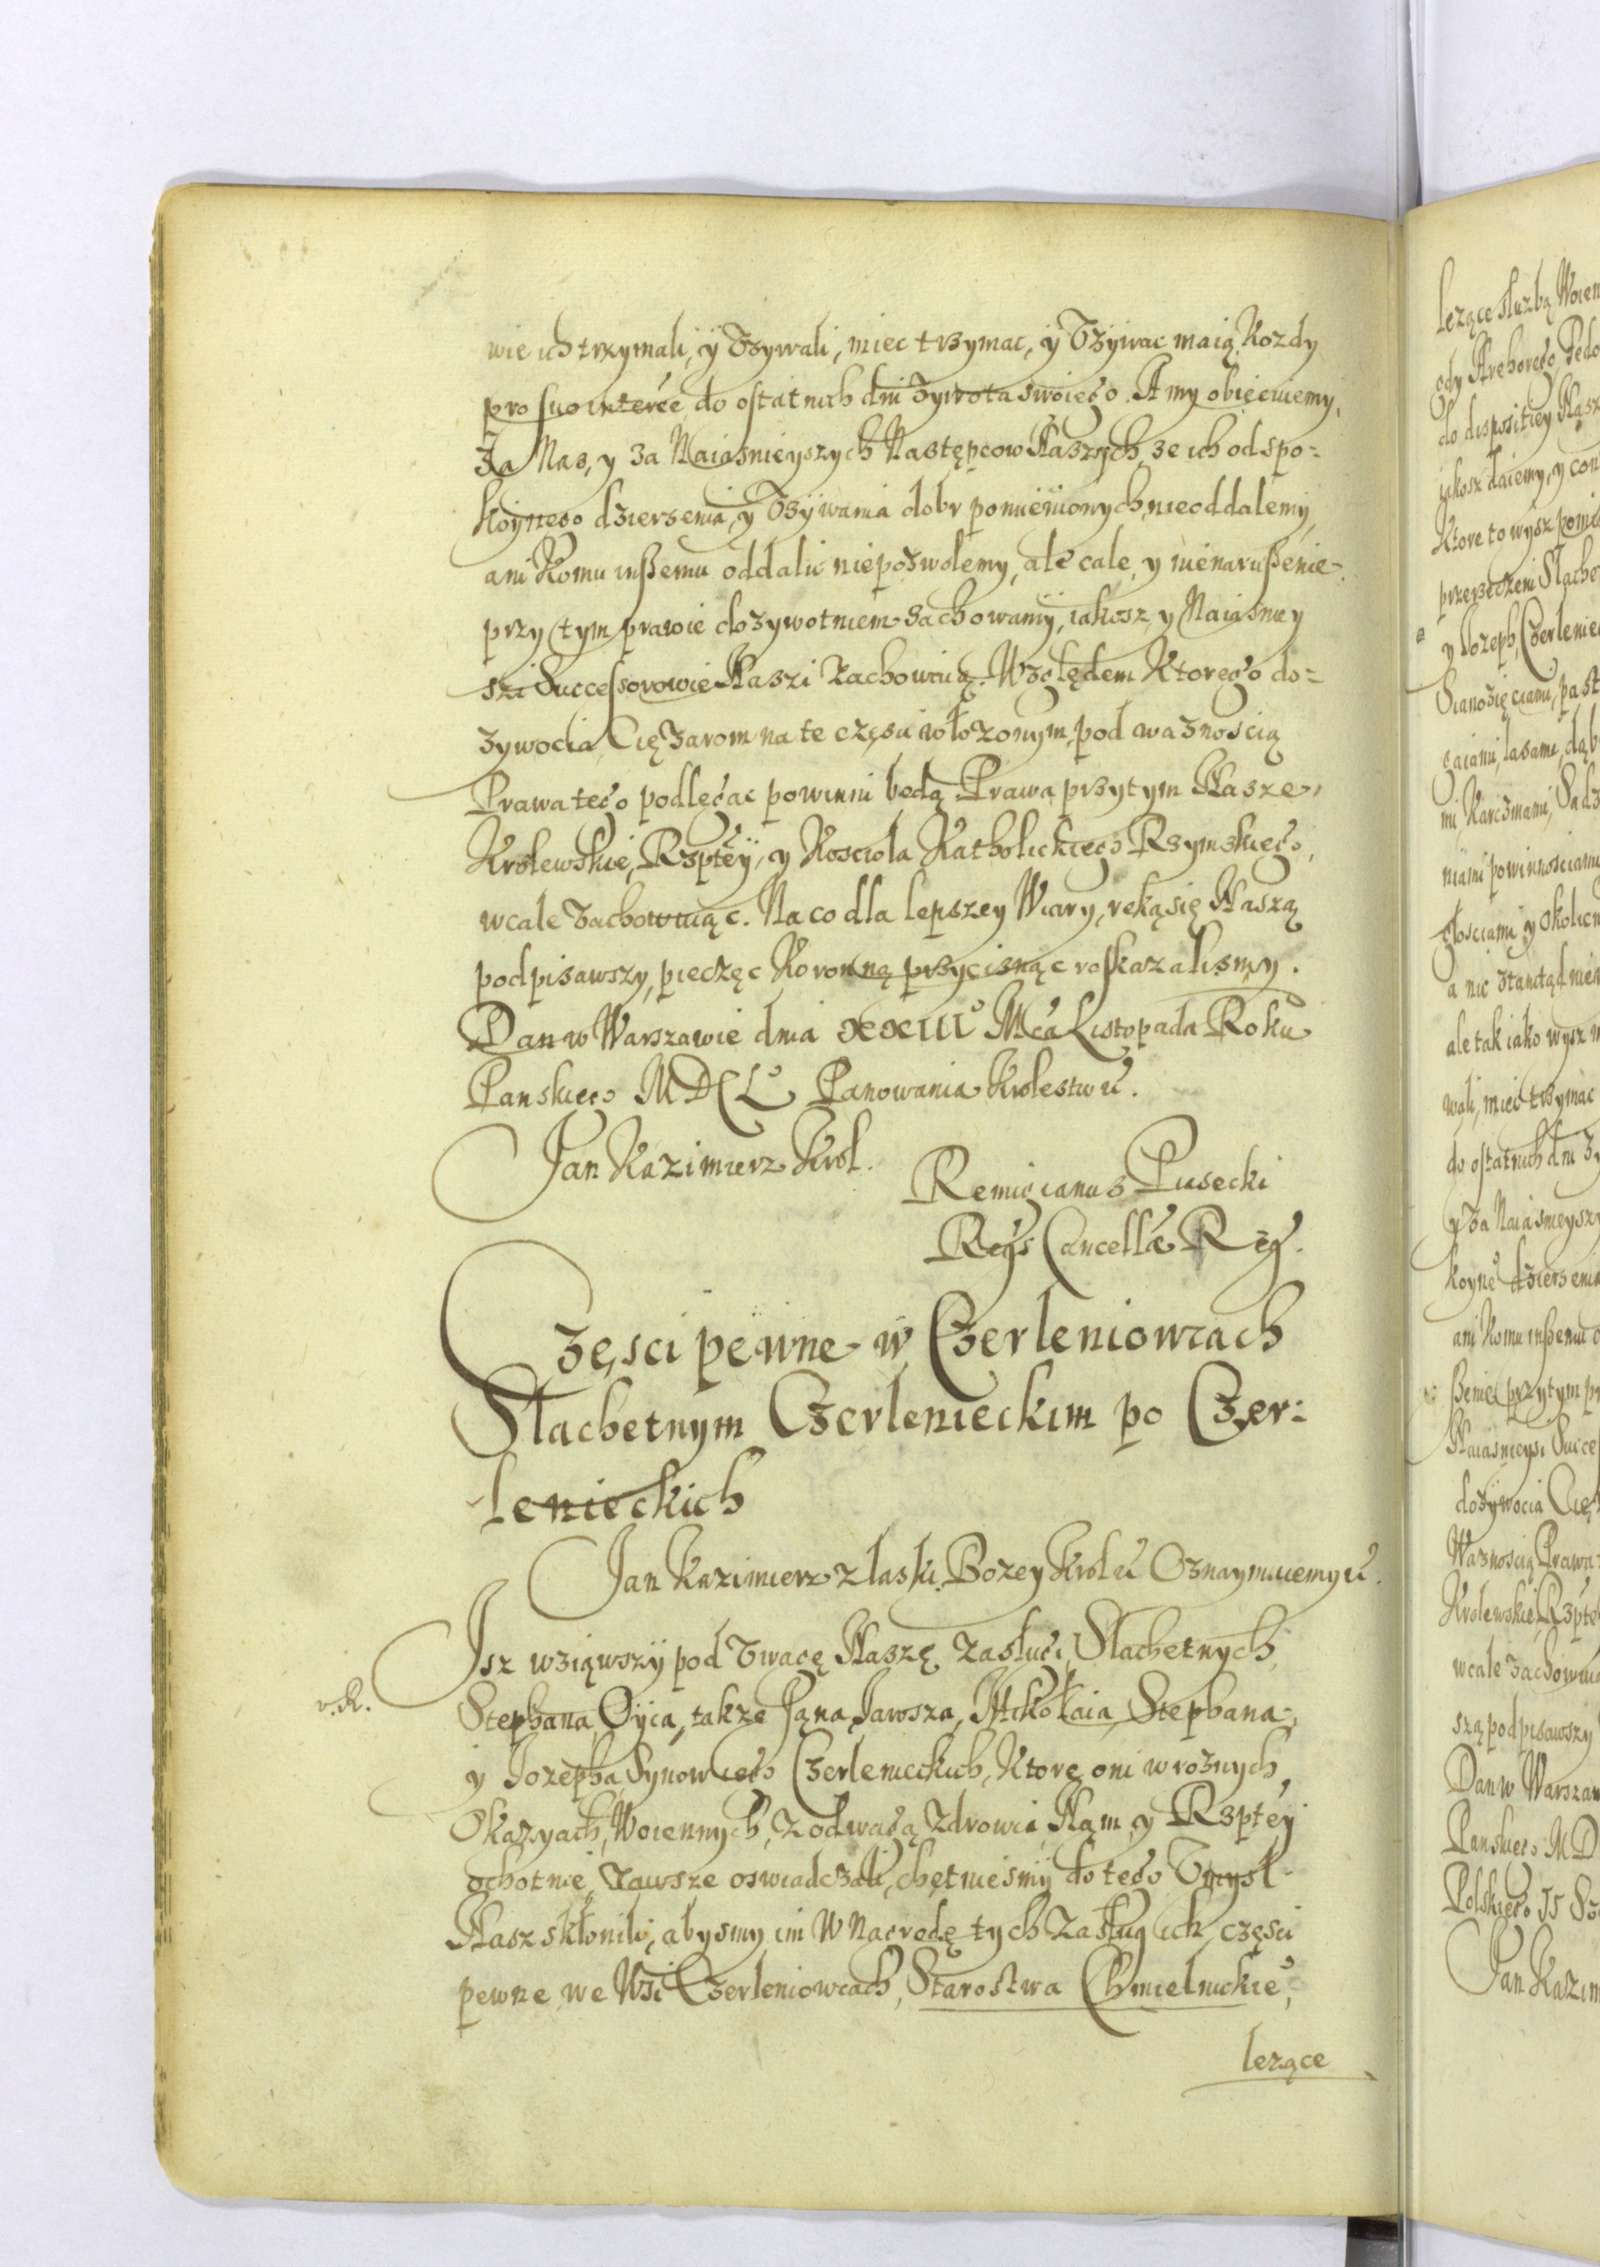 wie ich trzymali, ÿ Vzywali, miec trzymac, ÿ Vzÿwac maią, Kozdy
pro suo interee do ostatnich dni zywota swoiego. A my obiecuiemy,
Za Nas, y za Naiasnieyszych Nastepcow Naszych, ze ich od spo-
koynego dzierzenia, y Vzÿwania dobr pomienionych, nie oddalemy,
ani Komu inßemu oddalic niepozwolemy, ale cale, y nienarußenie
przy tym prawie dozywotniem zachowamÿ, iakosz y Naiasniey
szi Successorowie Naszi zachowaią. Względem Ktorego do-
zywocia Ciężarom na te częsci włozonym, pod waznoscią
Prawa tego podlegac powinni będą Prawa przytym Nasze,
Krolewskie, Rzptey, y Kosciola Katholickiego Rzymskiego,
wcale zachowuiąc. Na co dla lepszey Wiary, ręką się Naszą
podpisawszy, pieczęc Koronną przycisnąc roskazalismy.
Dan w Warszawie dnia xxiii° Mca Listopada Roku
Panskiego MDCL° Panowania Krolestwu.
Jan Kazimierz Krol.
Remigianus Piasecki
Regs Cancellæ Reg.
Częsci pewne w Czerleniowcach
Slachetnym Czerlenieckim po Czer-
lenieckich
Jan Kazimierz z laski Bozey Krol u Oznaymuiemy u.
Isz wziąwszÿ pod Vwagę Naszę zasługi Slachetnych
v. R.
Stephana Oÿca, takze Jana Jawsza, Mikołaia, Stephana,
y Jozepha Synow iego Czerlenieckich, Ktore oni w roznych
Okazyach Woiennych, z odwagą zdrowia, Nam y Rzptey
ochotnie zawsze oswiadczali, chętniesmÿ do tego Vmysł
Nasz skłonili, abysmy im W Nagrodę tych zasług ich, częsci
pewne we Wsi Czerleniowcach, Starostwa Chmielnickie°,
lezące
lezące sluzbą Woien
do dispositiey Nasz
iakosz daiemy, y con
Ktore to wysz pomie
przerzeczeni Slache
y Jozeph, Czerleniec
Sianozięciami, past
gaiami, lasami, dąb
mi, Karczmami, Sadz
niami powinnosciami
głosciami y Okolicz
ale tak iako wysz m
wali, miec trzymac
do ostatnich dni zy
y za Naiasnieyszy
koyne° dzierzenia
ani Komu inßemu o
ßenie przytym pr
Naiasnieysi Succes
dozÿwocia Cięz
Waznoscią Prawa t
Krolewskie, Rzpte
wcale zachowuią
szą podpisawszy
Dan w Warszaw
Panskiego MD
Polskiego
Jan Kazim